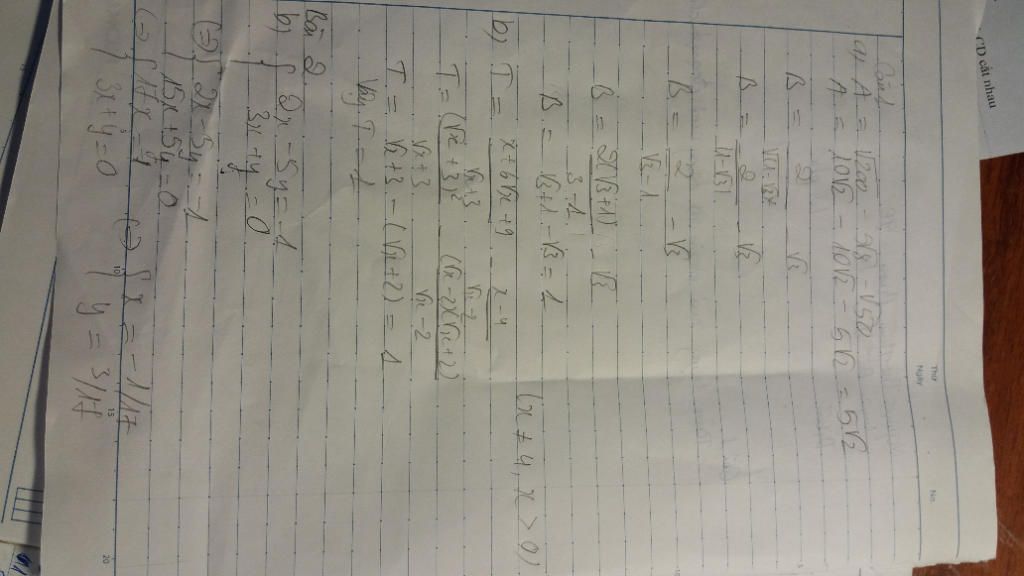 CD cắt nhau
Thứ
Ngày
No.
Câu 1
a, A = √200 - √8 - √50
A = 10√2 - 5√2 = 5√2
B = 2 / - √3
B = 2 / - √3
B = 2 / √3 - 1 - √3
B = 2(√3+1) / 3-1 - √3
B = √3+1 - √3 = 1
b, T = x+6√x+9 / √x+3 - x-4 / √x-2 (x ≠ 4, x > 0)
T = (√x+3)² / √x+3 - (√x-2)(√x+2) / √x-2
T = √x+3 - (√x+2) = 1
Vậy T = 1
Bài 2
b, { 2x - 5y = -1
3x + y = 0
(=) { 2x - 5y = -1
15x + 5y = 0
(=) { 17x = -1 (=) { x = -1/17
3x + y = 0 y = 3/17
5
10
15
20